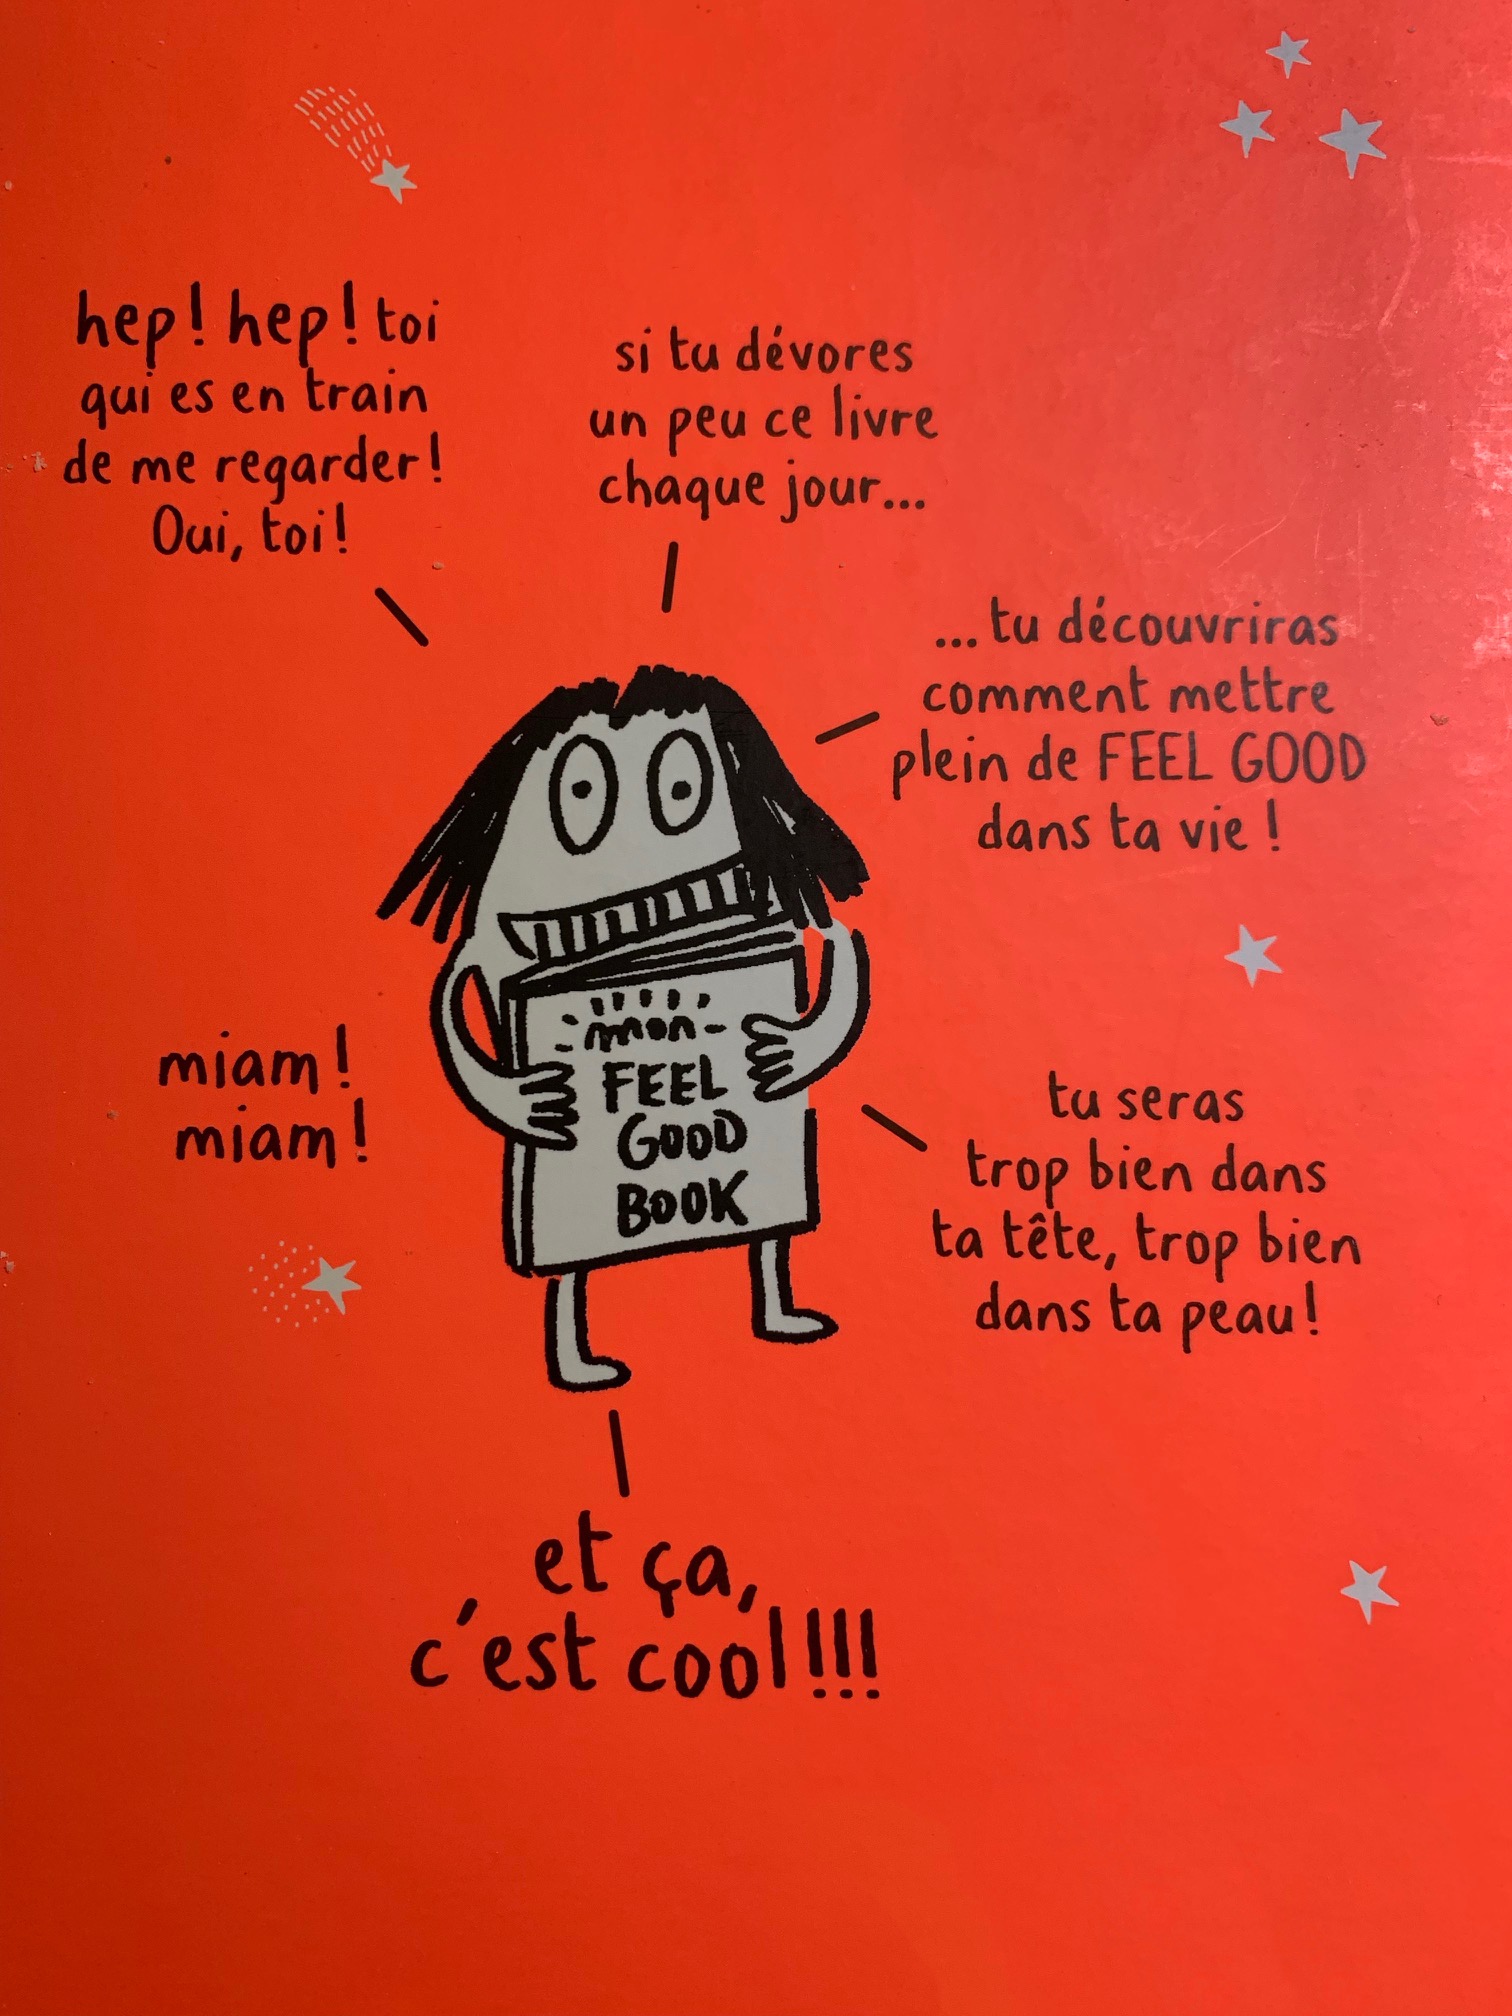 hep! hep! toi
qui es en train
de me regarder!
Oui, toi!
si tu dévores
un peu ce livre
chaque jour...
... tu découvriras
comment mettre
plein de FEEL GOOD
dans ta vie !
miam!
miam!
mon
FEEL
GOOD
BOOK
tu seras
trop bien dans
ta tête, trop bien
dans ta peau!
et ça,
c'est cool!!!